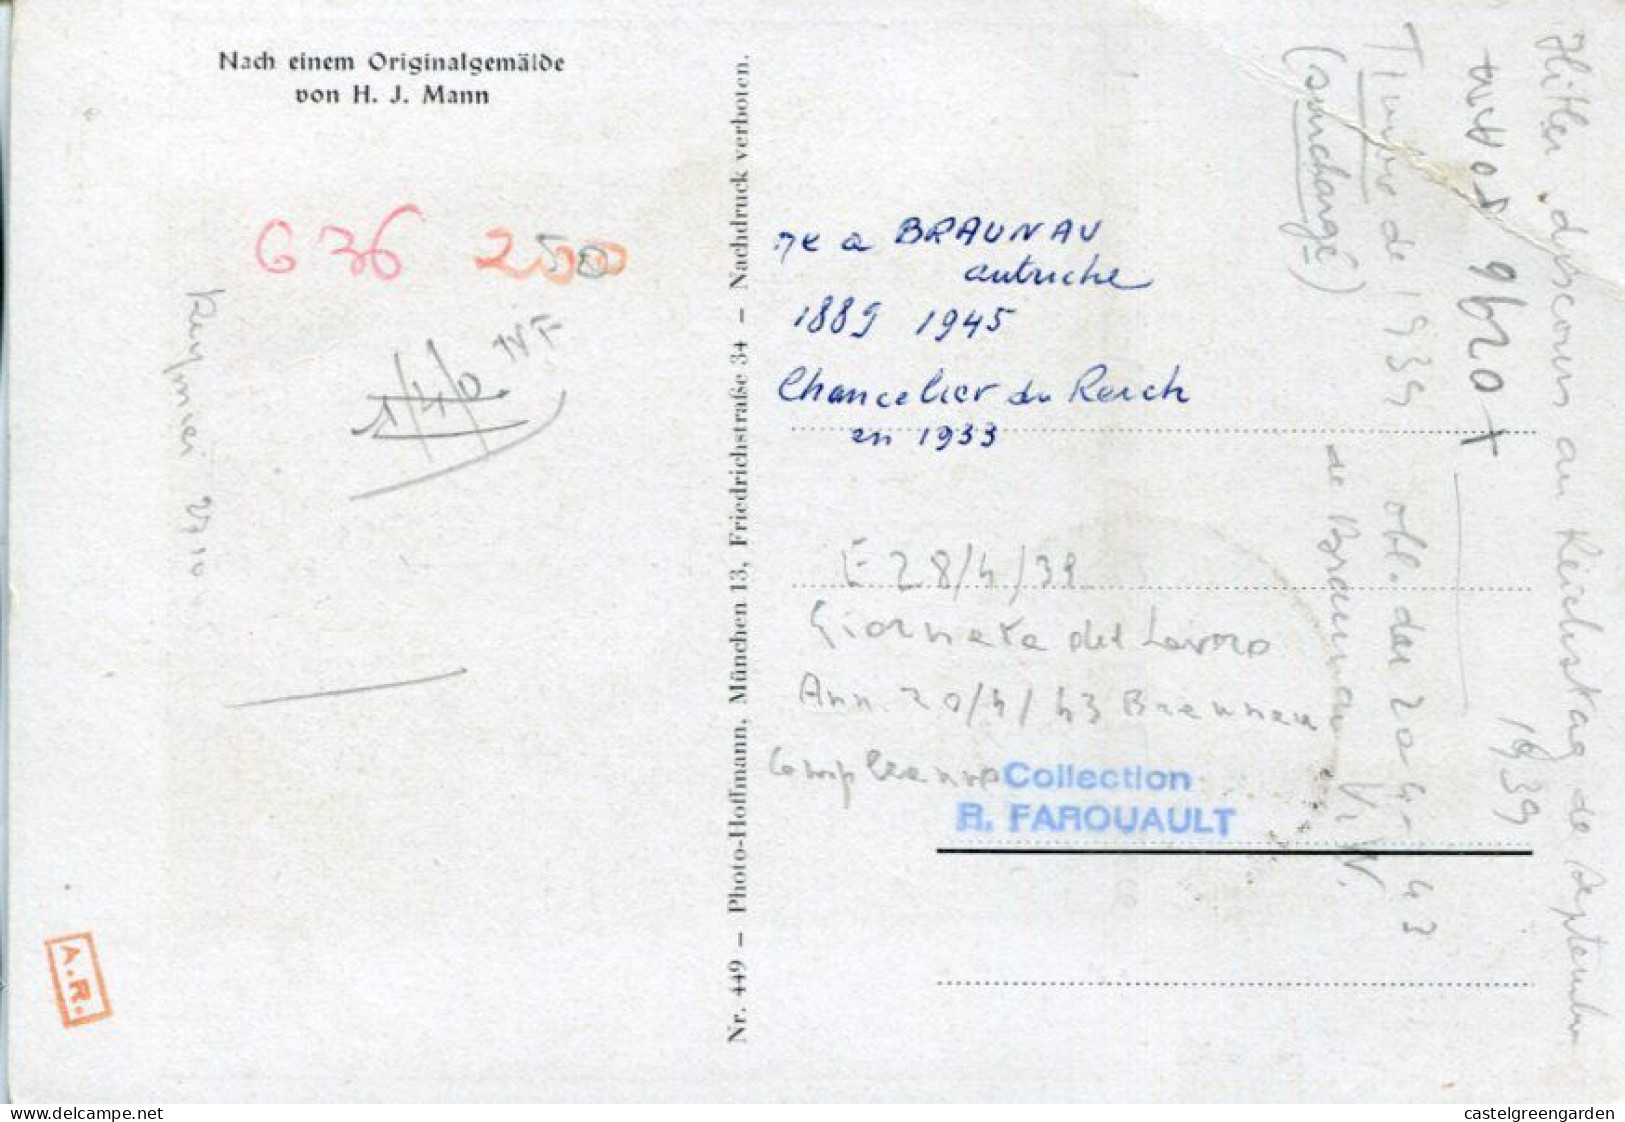 Nach einem Originalgemälde
von H. J. Mann
G 36
1/4/0
Nr. 449 – Photo-Hoffmann, München 13, Friedrichstraße 34 – Nachdruck verboten.
A.R.
a BRAUNAU
autriche
1889 1945
Chancelier du Reich
en 1933
E 28/4/39
Giornata del Lavoro
Ann. 20/4/43 Braunau
Compleanno
Collection
R. FAROUAULT
Hitler discours au Reichstag de Septembre
1939
Timbre de 1939 obl. du 20 4 43
(surchargé)
de Braunau
delcampe.net
castelgreengarden